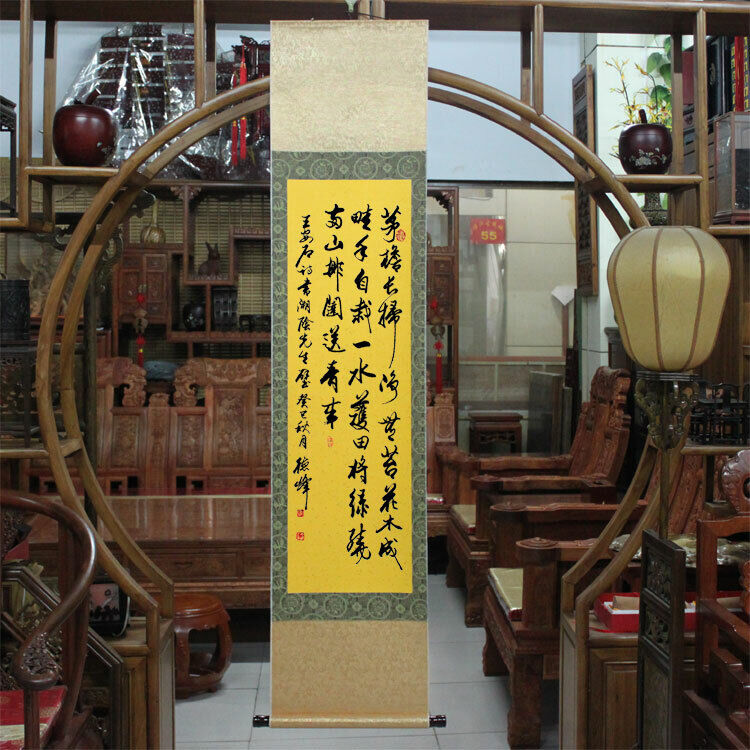 茅檐长掃净無苔花木成
畦手自栽一水護田将绿繞
两山排闥送青来
王安石詩書湖陰先生壁癸巳秋月德峰
55